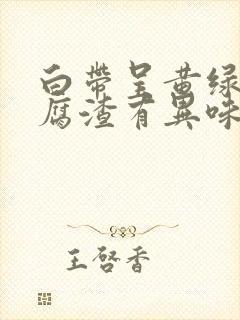 白帶呈黄绿
腐渣有異味
王啓香